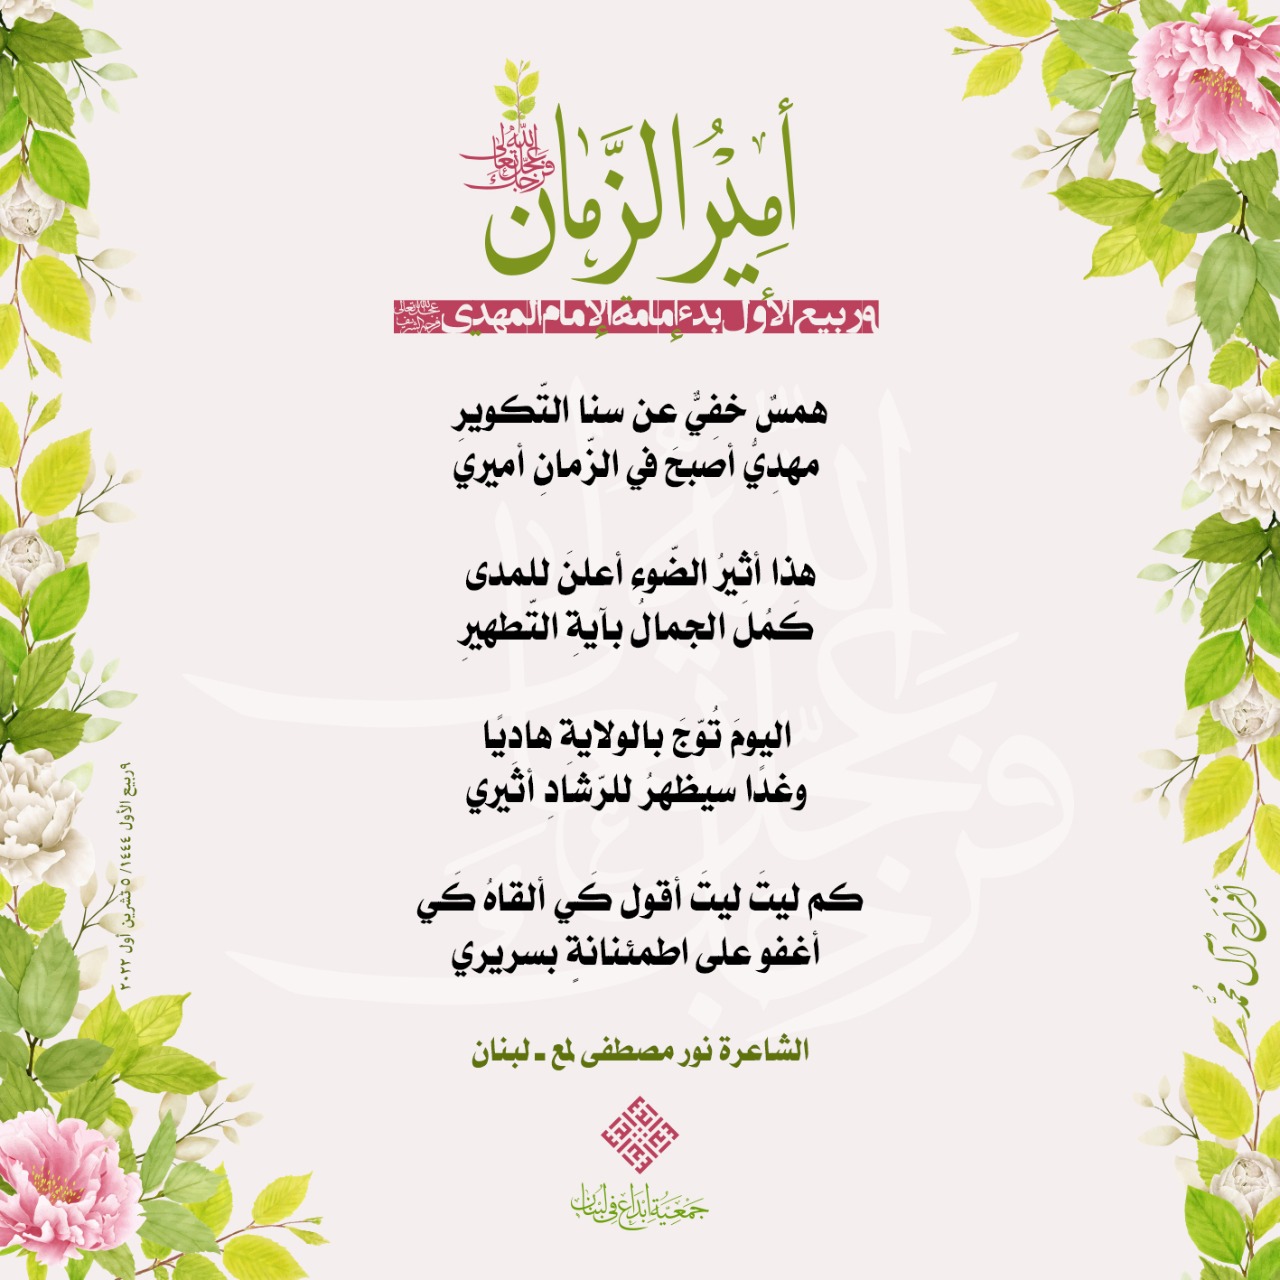 أَمِيْرُ الزَّمان
عجّل الله تعالى فرجك
٩ ربيع الأول بدء إمامة الإمام المهدي عجل الله تعالى فرجه الشريف
همسٌ خفِيٌّ عن سنا التّكويرِ
مهدِيُّ أصبحَ في الزّمانِ أميري
هذا أثيرُ الضّوءِ أعلنَ للمدى
كَمُلَ الجمالُ بآيةِ التّطهيرِ
اليومَ تُوّجَ بالولايةِ هاديًا
وغدًا سيظهرُ للرّشادِ أثَيري
كم ليتَ ليتَ أقول كَي ألقاهُ كَي
أغفو على اطمئنانةٍ بسريري
الشاعرة نور مصطفى لمع ـ لبنان
جمعية إبداع في لبنان
٩ ربيع الأول ١٤٤٤/ ٥ تشرين أول ٢٠٢٢
أفراح آل محمد